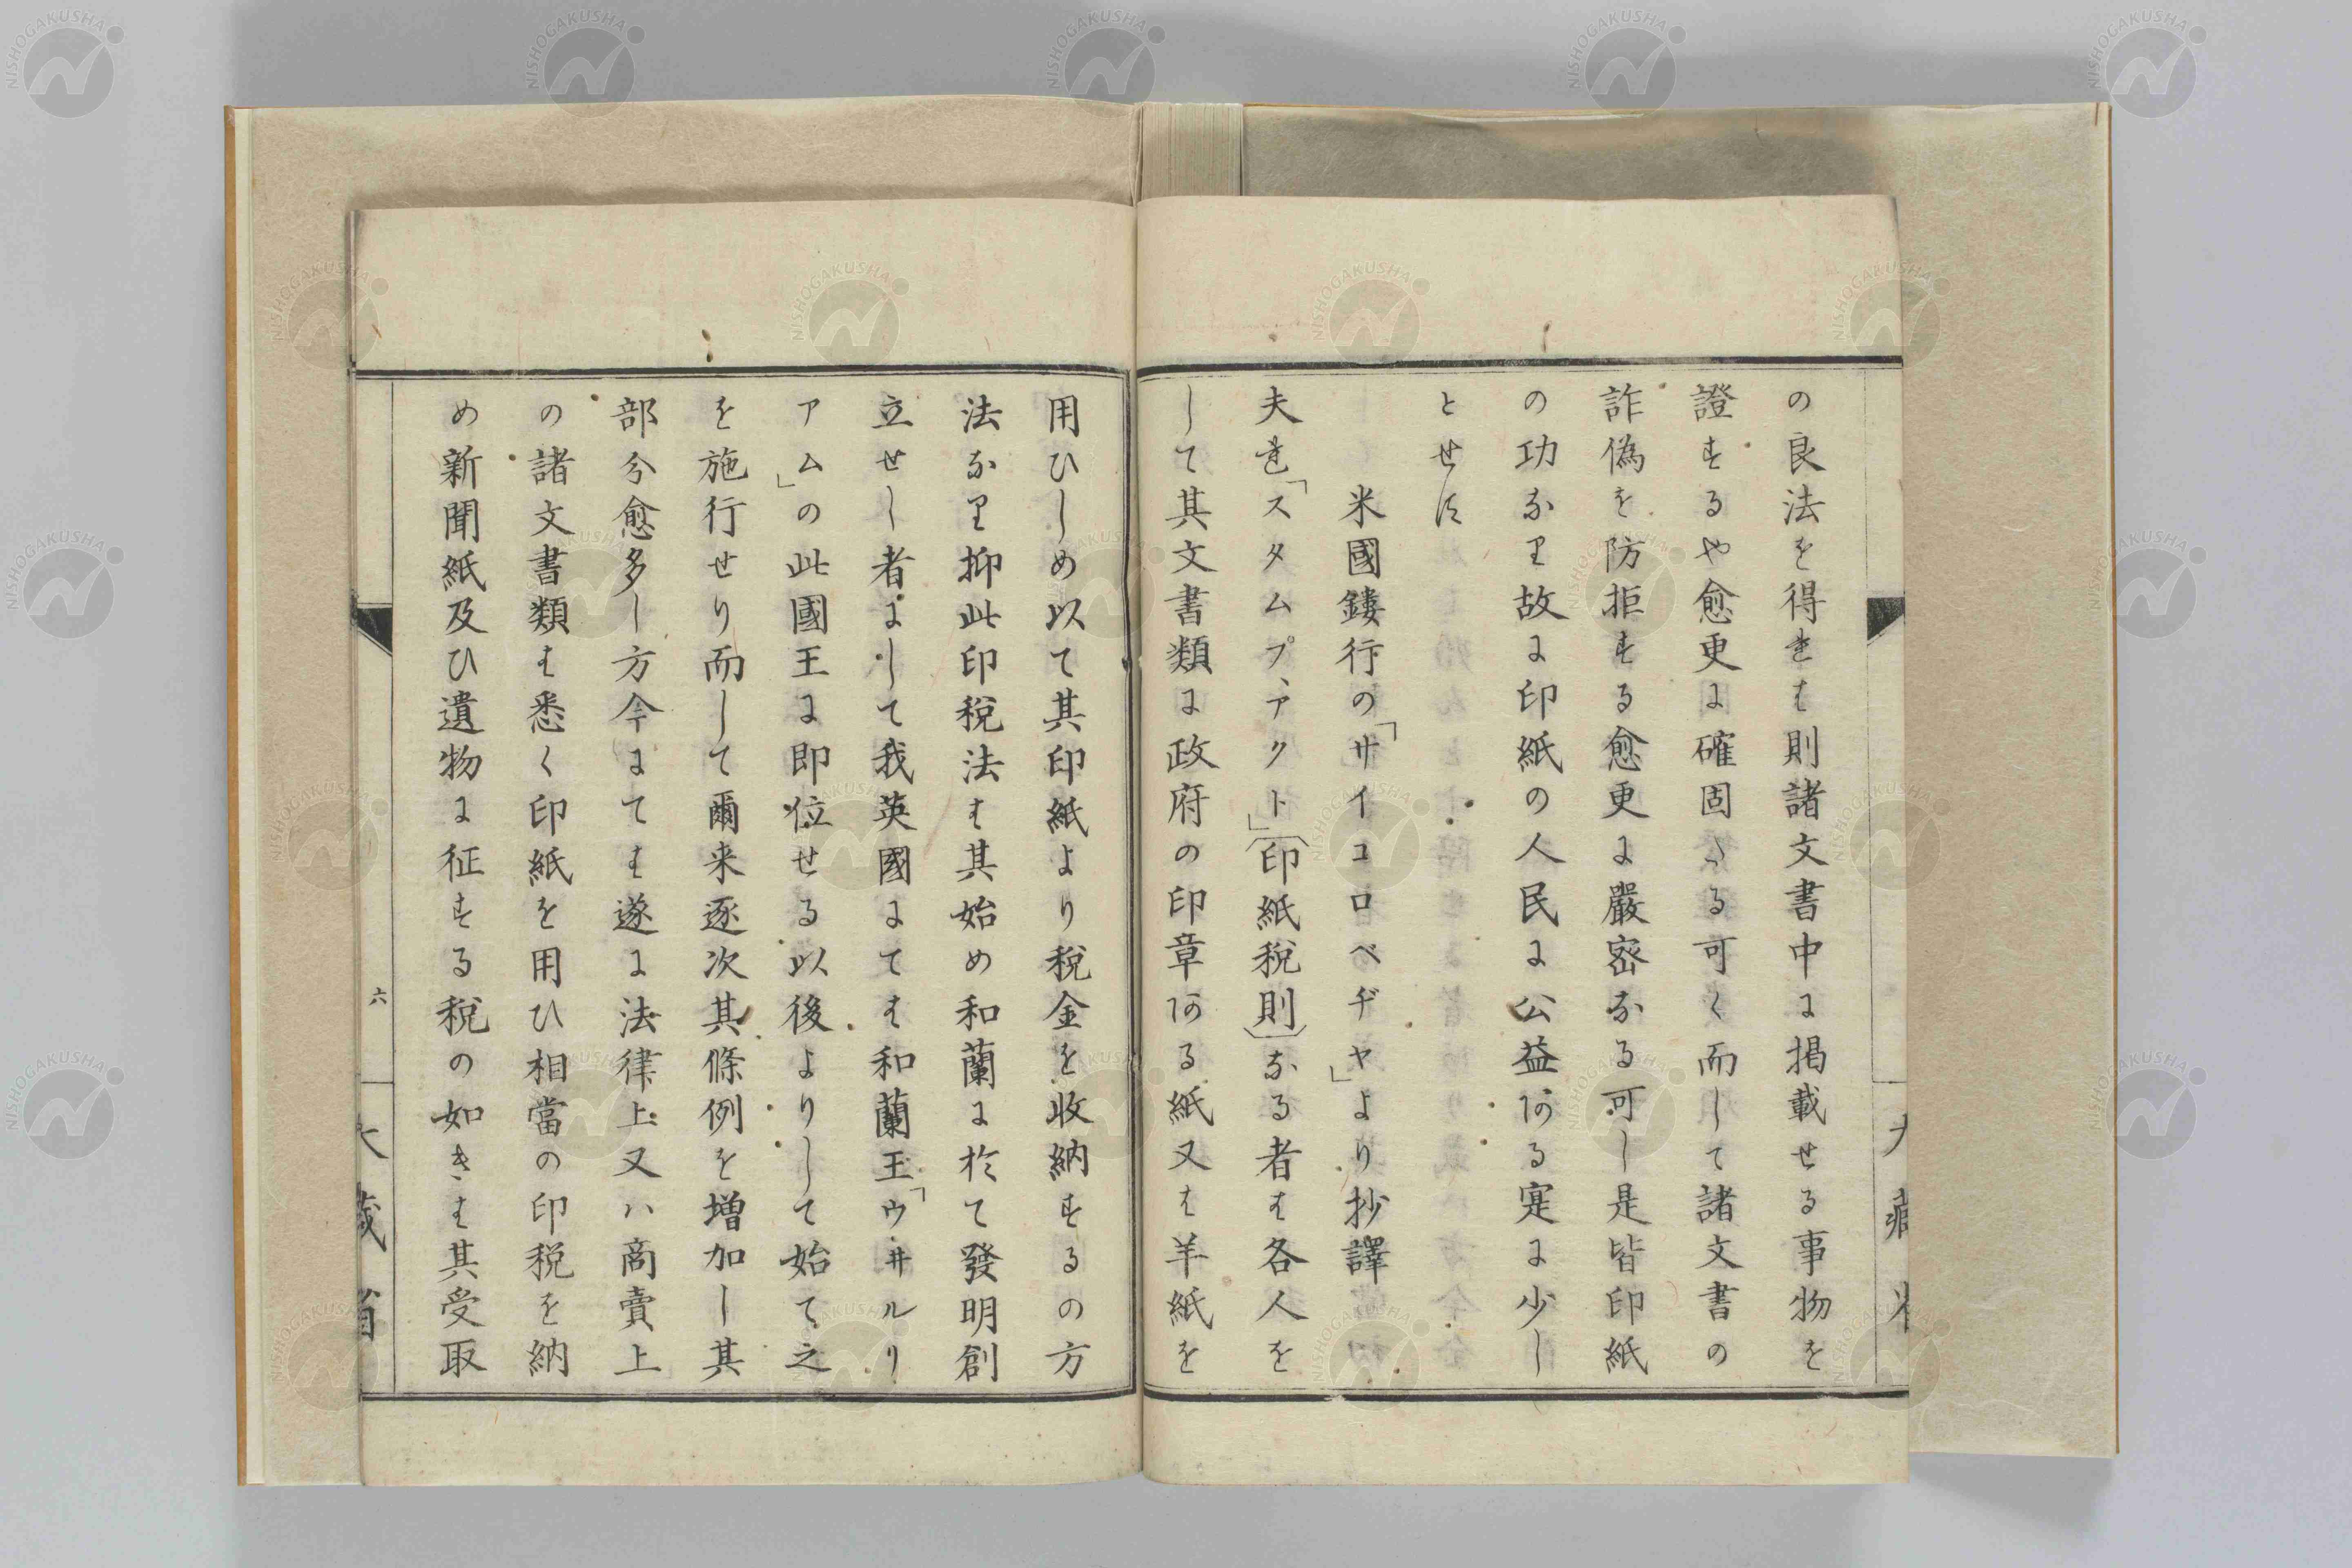 の良法を得れは則諸文書中に掲載せる事物を
證するや愈更に確固たる可く而して諸文書の
詐偽を防拒する愈更に嚴密なる可し是皆印紙
の功なり故に印紙の人民に公益ある寔に少し
とせす
米國鏤行の「サイコロペヂヤ」より抄譯
夫れ「スタムプ、アクト」(印紙税則)なる者は各人を
して其文書類に政府の印章ある紙又は羊紙を
用ひしめ以て其印紙より税金を收納するの方
法なり抑此印税法は其始め和蘭に於て發明創
立せし者にして我英國にては和蘭王「ウ井ルリ
アム」の此國王に即位せる以後よりして始て之
を施行せり而して爾来逐次其條例を増加し其
部分愈多し方今にては遂に法律上又ハ商賣上
の諸文書類は悉く印紙を用ひ相當の印税を納
め新聞紙及ひ遺物に征する税の如きは其受取
六
大藏省
NISHOGAKUSHA